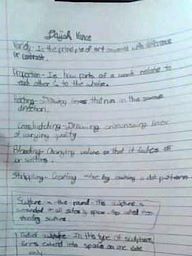 Variety- Is the principles of art concerned with difference
or contrast.
Proportion- Is how parts of a work relate to
each other & to the whole.
Hatching- Drawing lines that run in the same
direction.
Crosshatching- Drawing crisscrossing lines
of varying quality
Blending- Changing value so that it fades off
or
Stippling- Creating value by making a dot patterns.
Sculpture in the round- The sculpture is
surrounded on all sides by space.
sculpture
Relief sculpture- In this type of sculpture,
forms extend into space on one side
only.